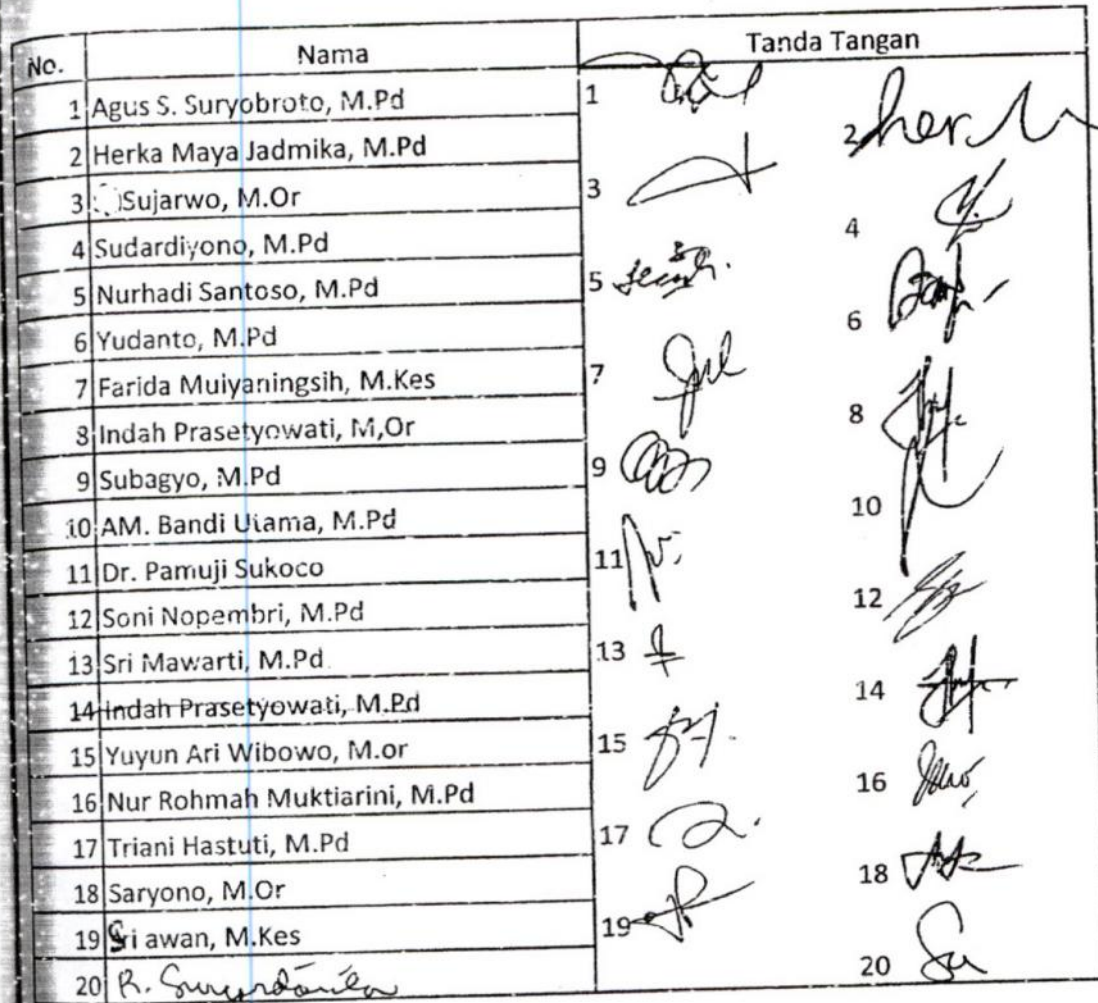 No. Nama Tanda Tangan
1 Agus S. Suryobroto, M.Pd 1
2 Herka Maya Jadmika, M.Pd 2
3 Sujarwo, M.Or 3
4 Sudardiyono, M.Pd 4
5 Nurhadi Santoso, M.Pd 5
6 Yudanto, M.Pd 6
7 Farida Muiyaningsih, M.Kes 7
8 Indah Prasetyowati, M,Or 8
9 Subagyo, M.Pd 9
10 AM. Bandi Utama, M.Pd 10
11 Dr. Pamuji Sukoco 11
12 Soni Nopembri, M.Pd 12
13 Sri Mawarti, M.Pd 13
14 Indah Prasetyowati, M.Pd 14
15 Yuyun Ari Wibowo, M.or 15
16 Nur Rohmah Muktiarini, M.Pd 16
17 Triani Hastuti, M.Pd 17
18 Saryono, M.Or 18
19 Sri awan, M.Kes 19
20 R. 20